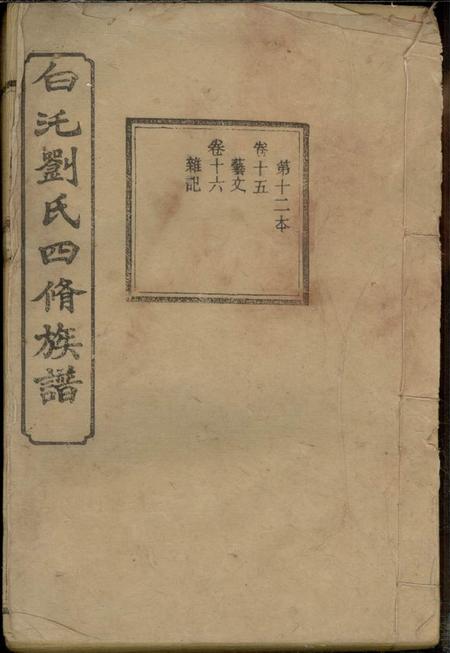 白沱劉氏四脩族譜
第十二本
卷十五
藝文
卷十六
雜記